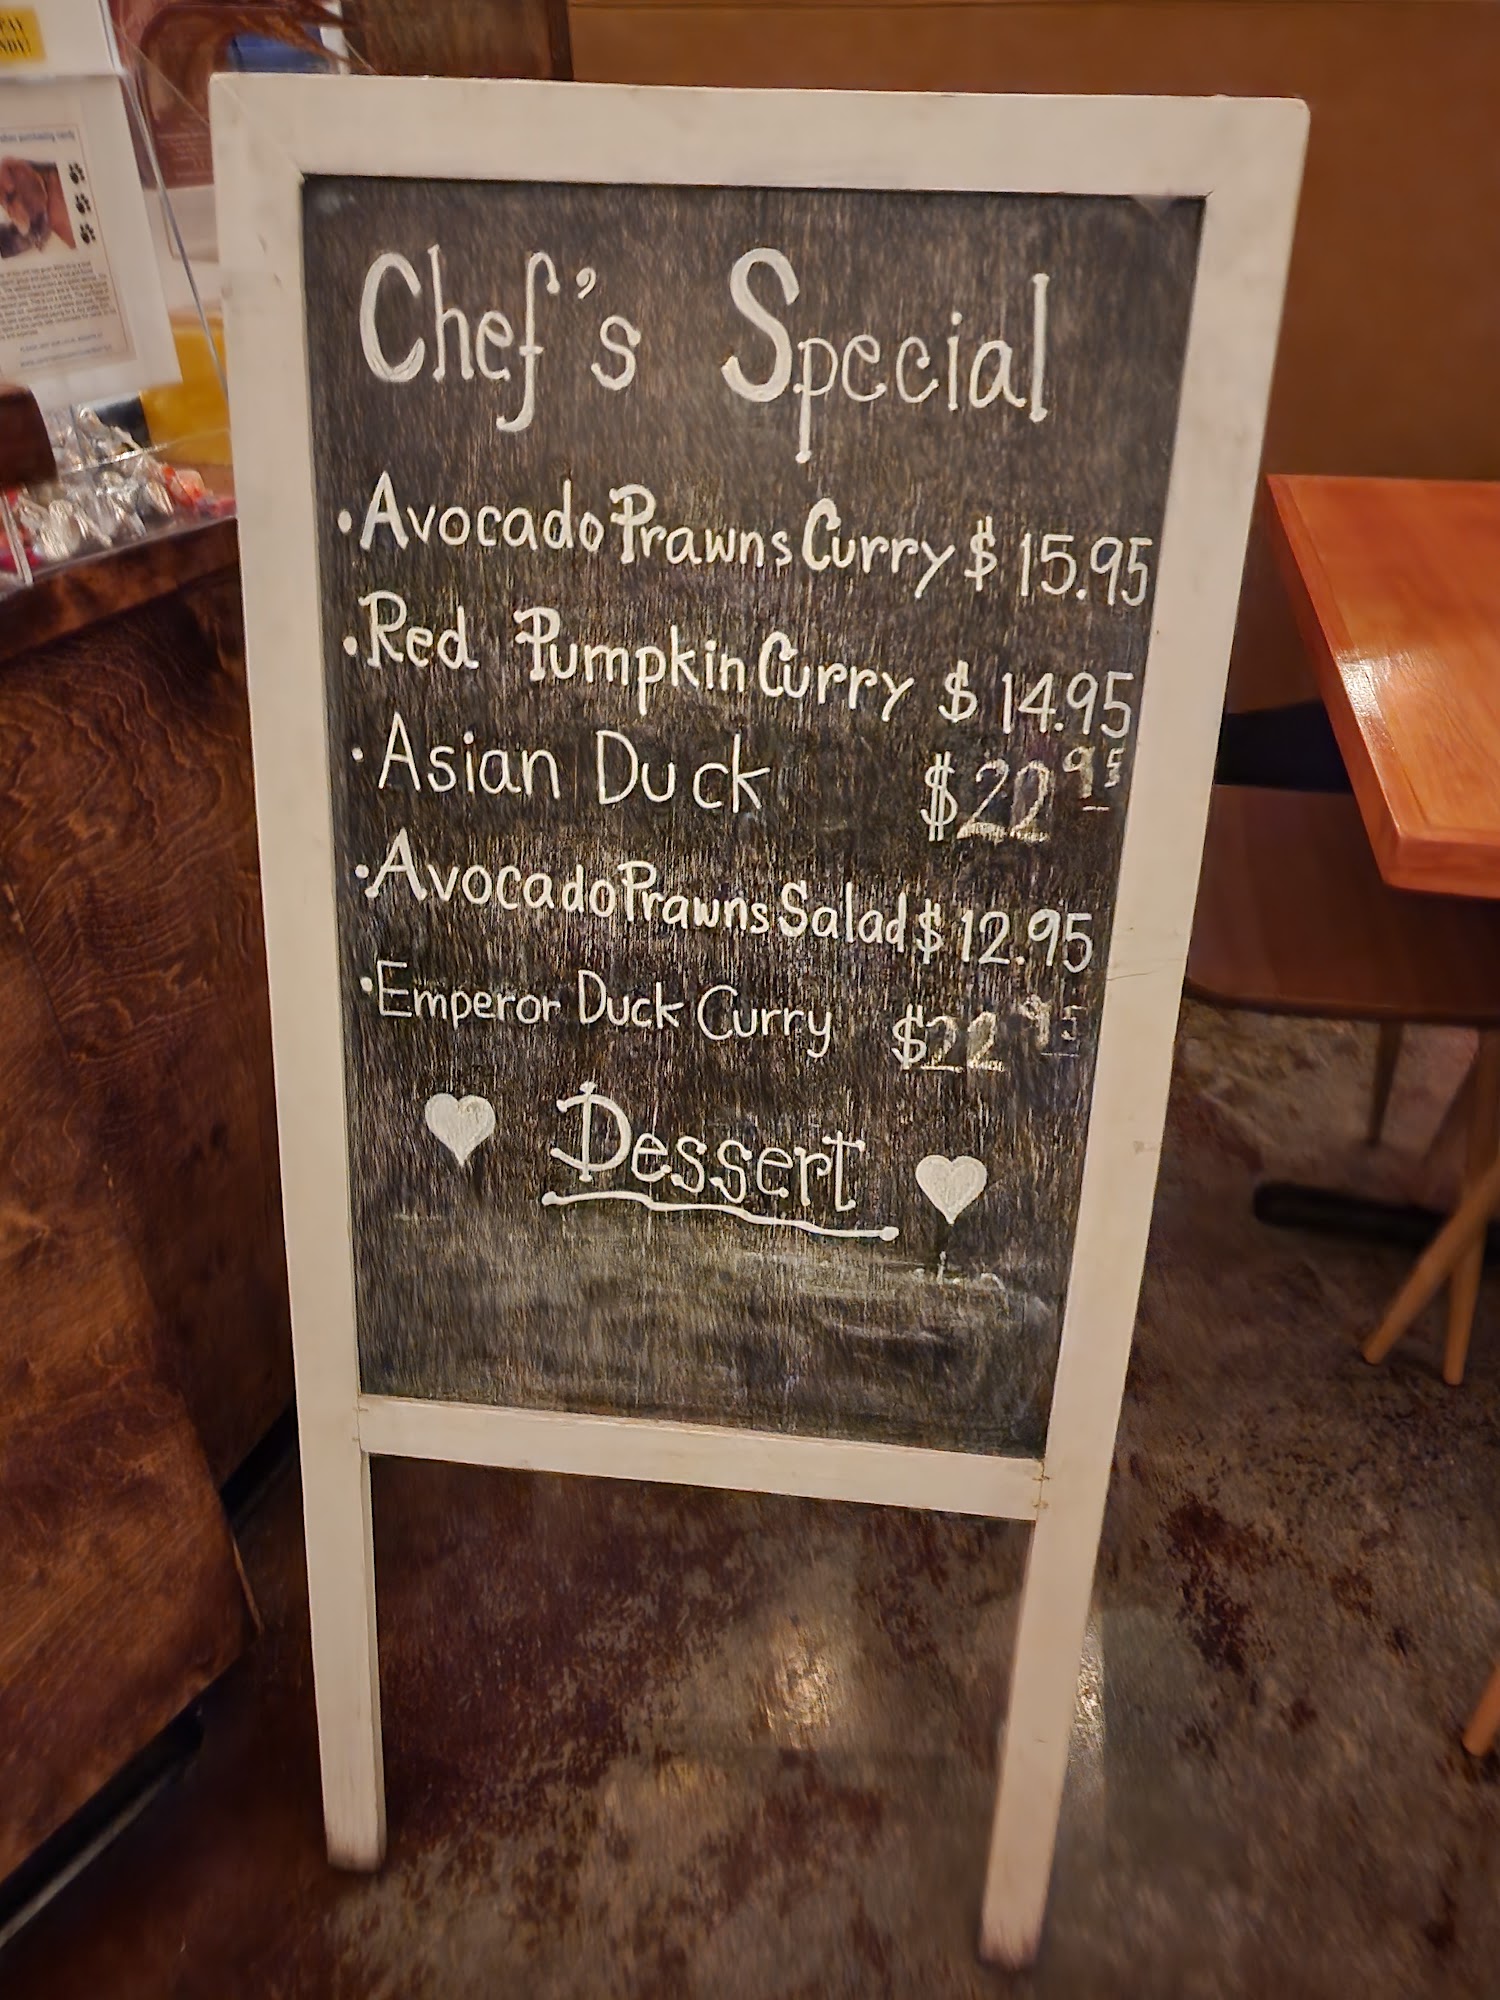 PAY
Chef's Special
·Avocado Prawns Curry $ 15.95
·Red Pumpkin Curry $ 14.95
·Asian Duck $22.95
·Avocado Prawns Salad $ 12.95
·Emperor Duck Curry $22.95
Dessert